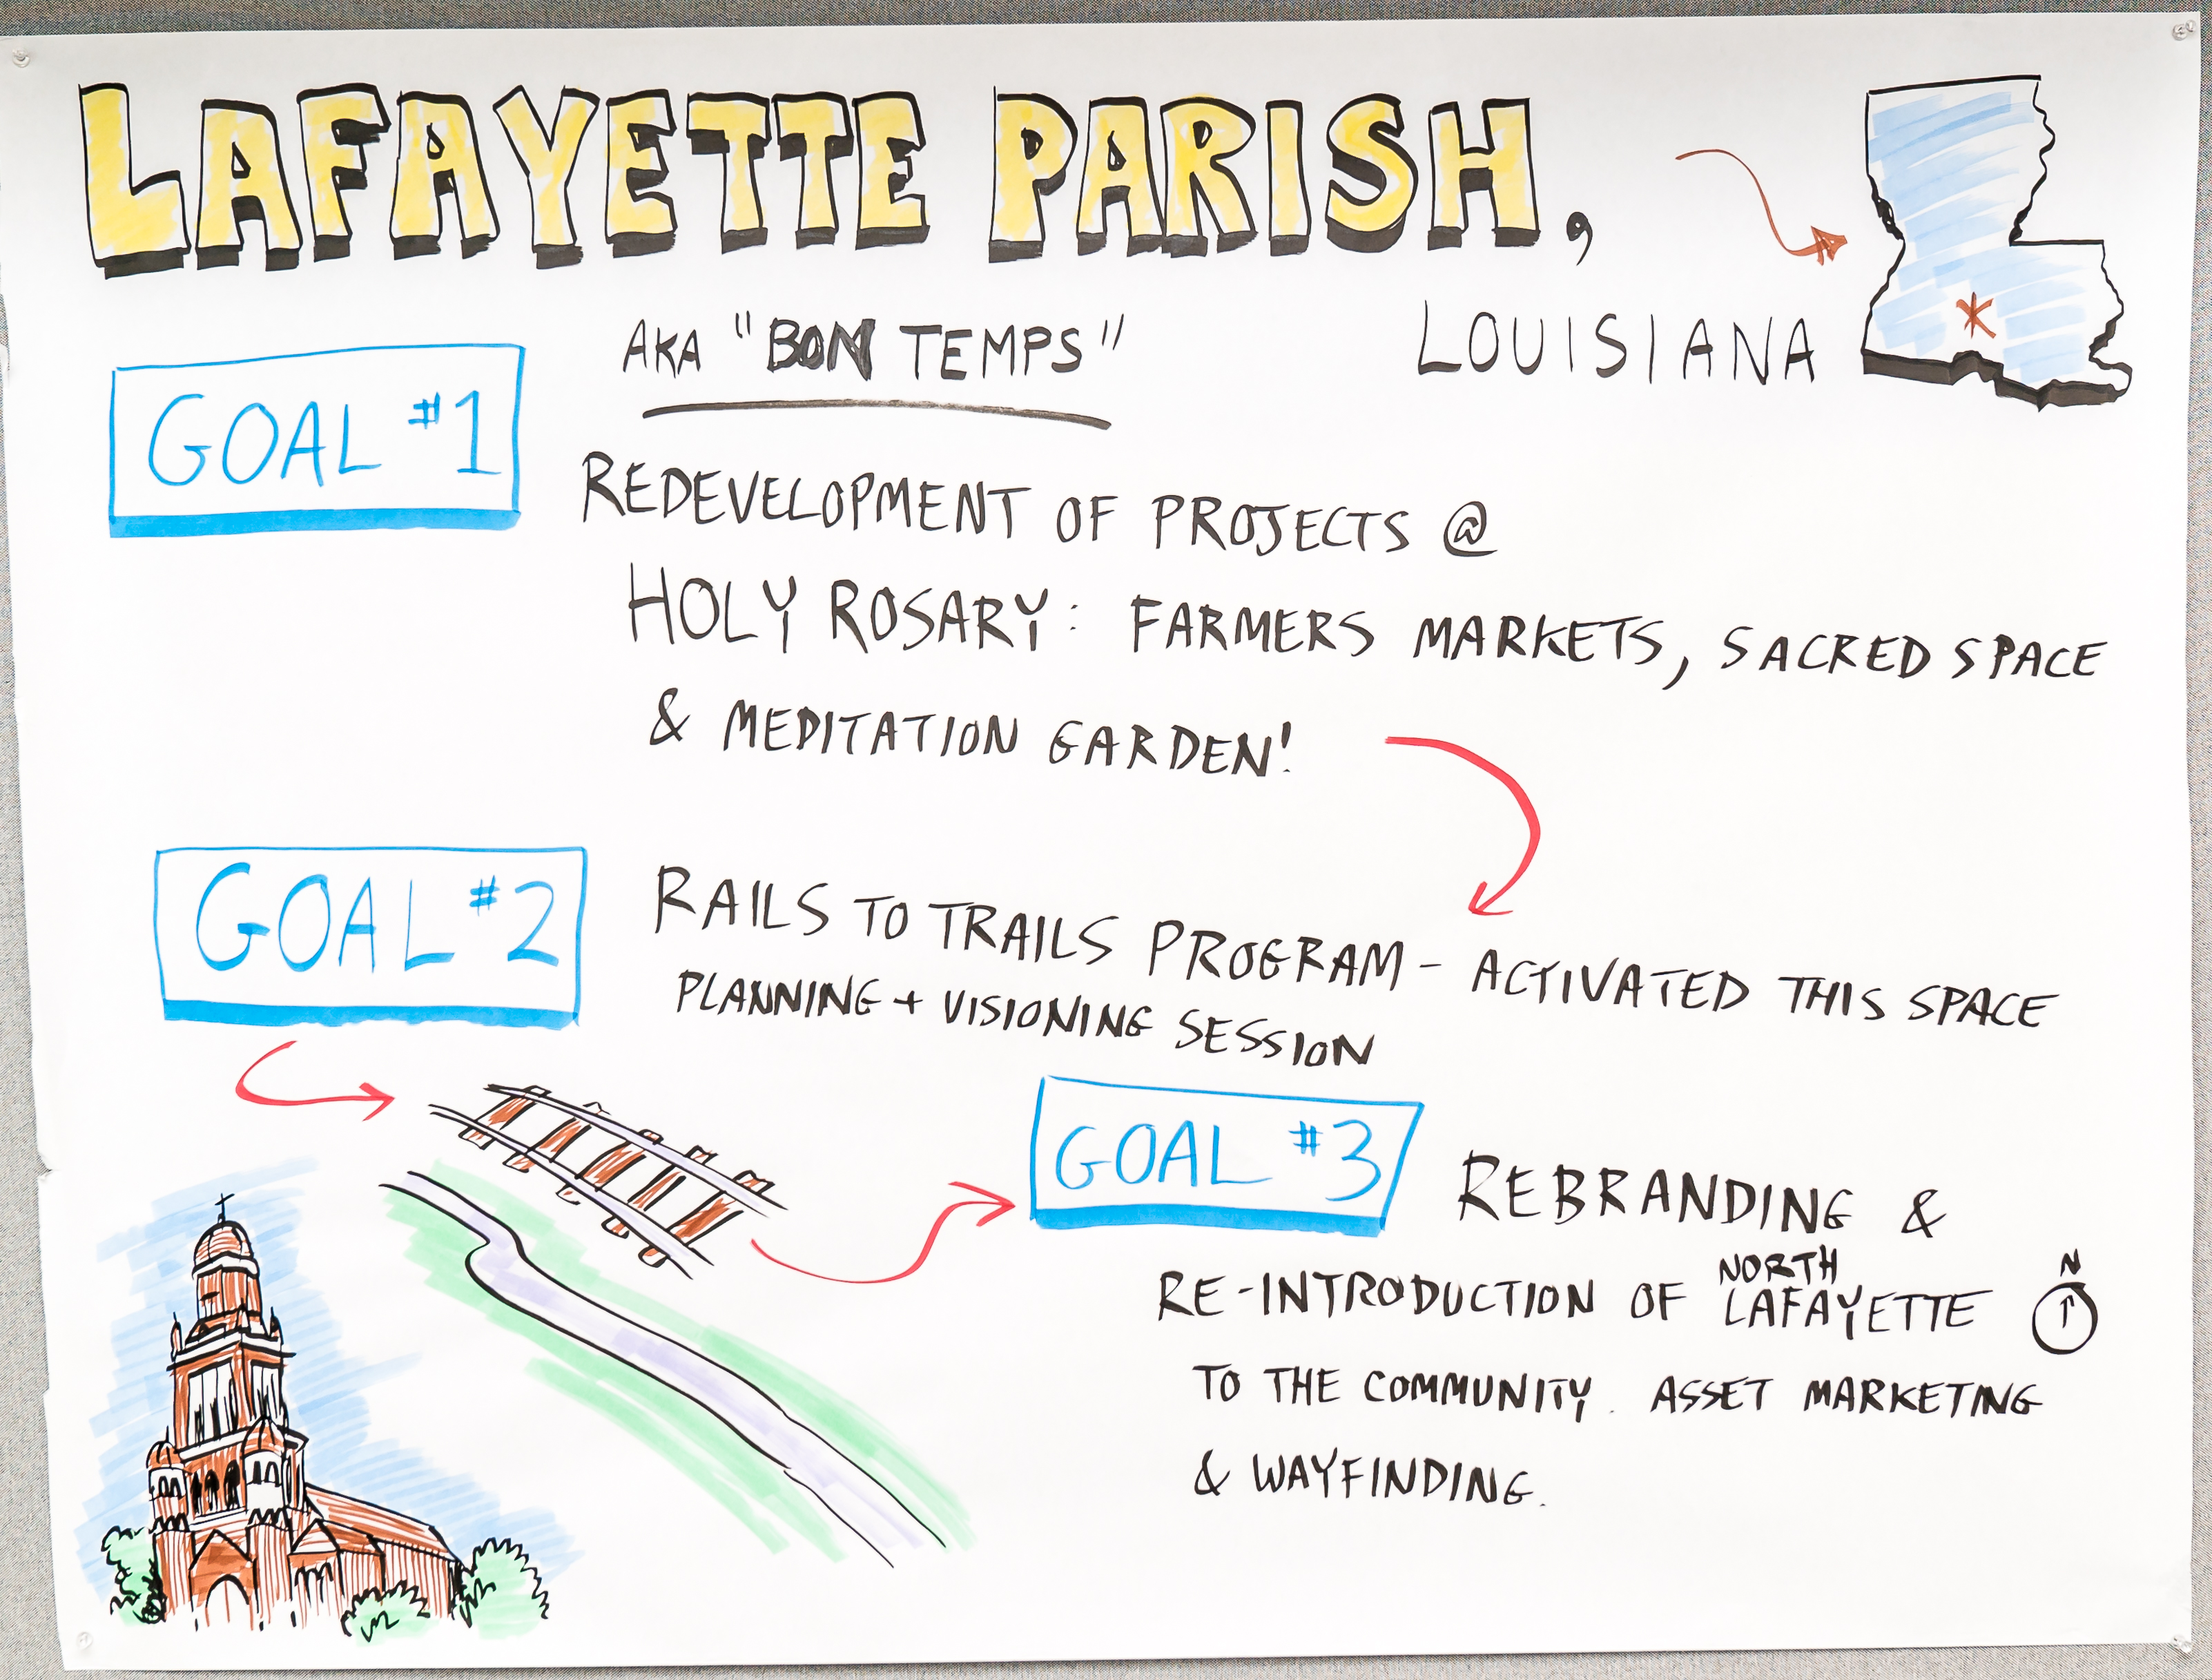 LAFAYETTE PARISH,
AKA "BON TEMPS"
LOUISIANA
GOAL #1
REDEVELOPMENT OF PROJECTS @
HOLY ROSARY: FARMERS MARKETS, SACRED SPACE
& MEDITATION GARDEN!
GOAL #2
RAILS TO TRAILS PROGRAM - ACTIVATED THIS SPACE
PLANNING + VISIONING SESSION
GOAL #3
REBRANDING &
RE-INTRODUCTION OF NORTH LAFAYETTE
N
TO THE COMMUNITY. ASSET MARKETING
& WAYFINDING.